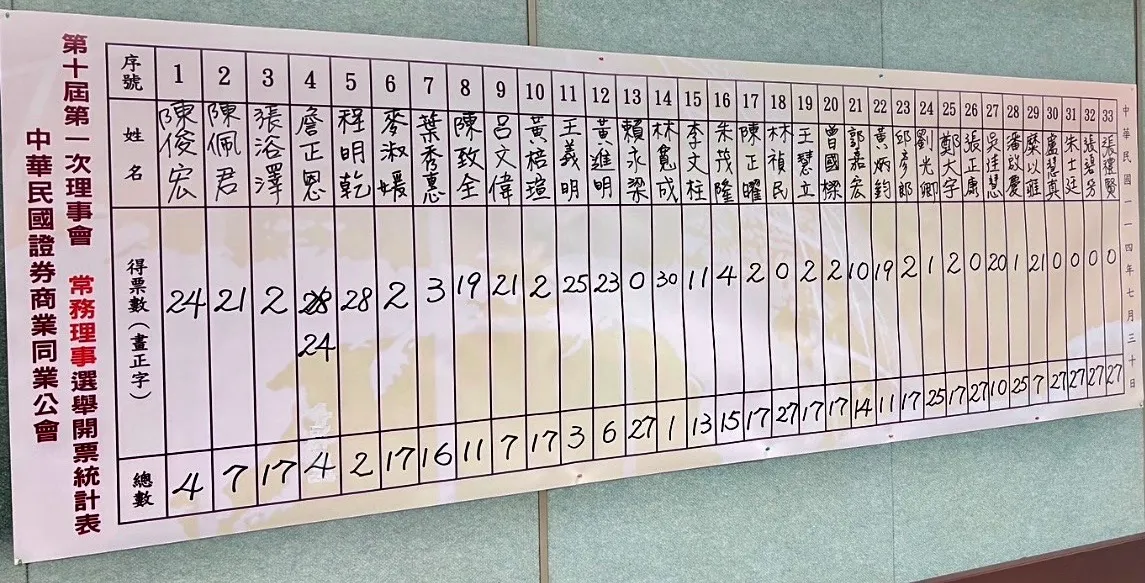 中華民國證券商業同業公會
第十屆第一次理事會 常務理事選舉開票統計表
序號 1 2 3 4 5 6 7 8 9 10 11 12 13 14 15 16 17 18 19 20 21 22 23 24 25 26 27 28 29 30 31 32 33
姓名 陳俊宏 陳佩君 張浴澤 詹正恩 程明乾 麥淑媛 葉秀惠 陳致全 呂文偉 黃棓瑄 王義明 黃進明 賴永梁 林寬成 李文柱 朱茂隆 陳正曜 林禎民 王慧立 曾國樑 郭嘉宏 黃炳鈞 邱彥郎 劉光卿 鄭大宇 張正康 吳佳慧 潘啟慶 糜以雍 盧慧真 朱士廷 張碧芳 張禮賢
得票數(畫正字) 24 21 2 28 24 28 2 3 19 21 2 25 23 0 30 11 4 2 0 2 2 10 19 2 1 2 0 20 1 21 0 0 0 0
總數 4 7 17 4 2 17 16 11 7 17 3 6 27 1 13 15 17 27 17 17 14 11 17 25 17 27 10 25 7 27 27 27 27
中華民國一一四年七月三十日